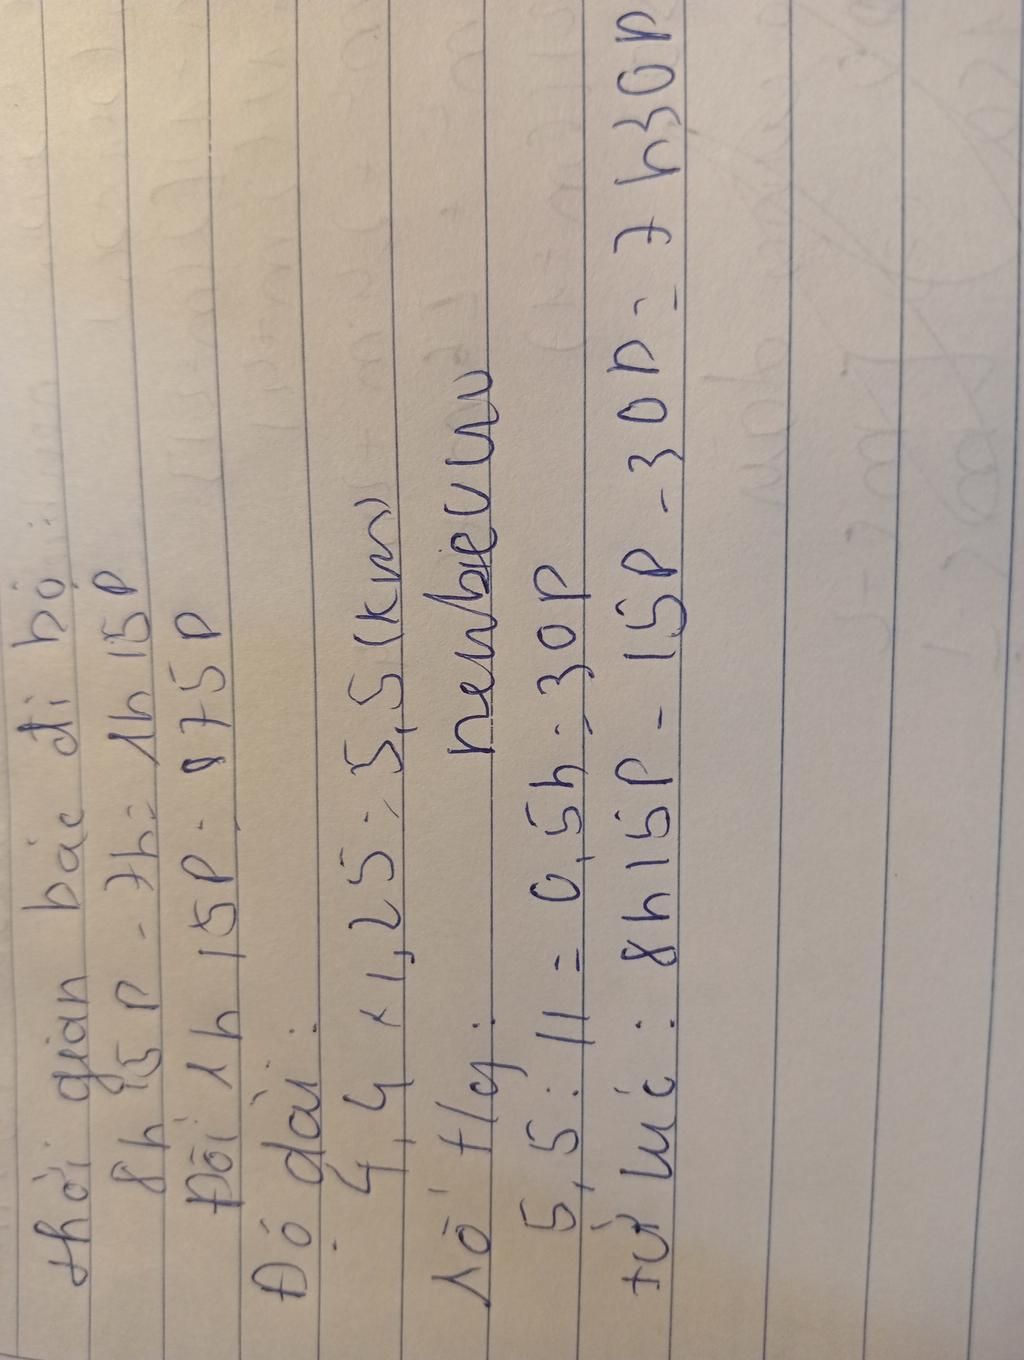 thời gian bác đi bộ:
8h 15P - 7h = 1h 15P
Đổi 1h 15P = 75P
Độ dài:
4,4 × 1,25 = 5,5 (km)
số t/g:
5,5 : 11 = 0,5h = 30P
từ lúc : 8h15P - 15P - 30P = 7h30P